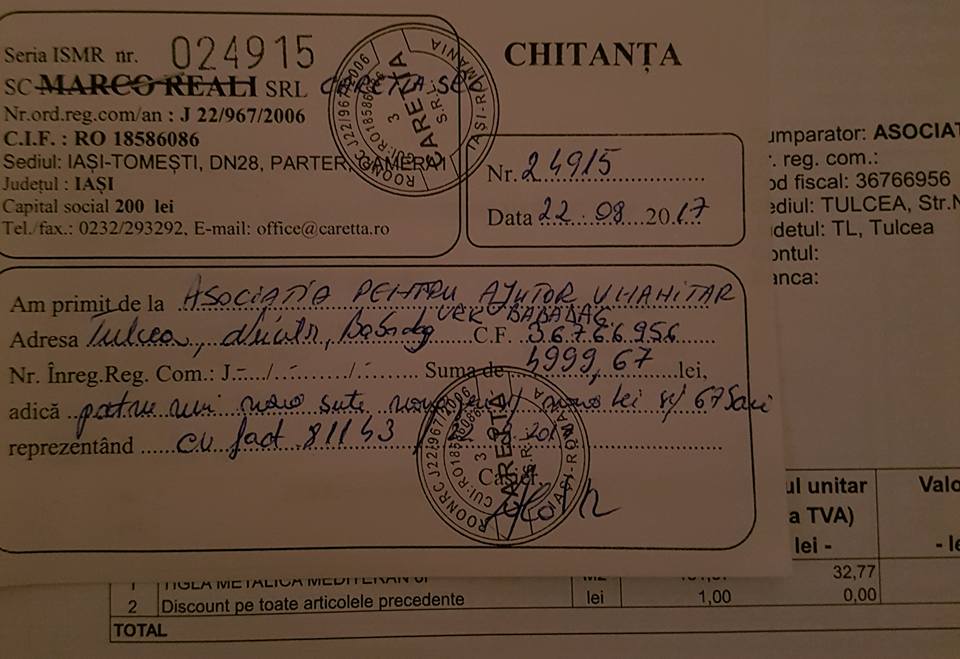 CHITANȚA
Seria ISMR nr. 024915
SC MARCO REALI SRL CARETTA SRL
Nr.ord.reg.com/an : J 22/967/2006
C.I.F. : RO 18586086
Sediul: IAȘI-TOMEȘTI, DN28, PARTER, CAMERA1
Județul : IAȘI
Capital social 200 lei
Tel./fax.: 0232/293292, E-mail: office@caretta.ro
ROONRC J22/967/2006 IAȘI-ROMANIA
CUI:RO18586086
3
CARETTA
S.R.L.
Nr. 24915
Data 22.08.2017
Am primit de la ASOCIATIA PENTRU AJUTOR UMANITAR
BABADAG
Adresa Tulcea, Babadag C.F. 36766956
Nr. Înreg.Reg. Com.: J-...../...-...../...-...... Suma de 4999,67 lei,
adică patru mii nouă sute lei și 67 bani
reprezentând cu fact 81143
Casier,
ROONRC J22/967/2006 IAȘI-ROMANIA
CUI:RO18586086
3
CARETTA
S.R.L.
umparator: ASOCIAT
. reg. com.:
od fiscal: 36766956
ediul: TULCEA, Str.
udetul: TL, Tulcea
ontul:
anca:
ul unitar Valo
a TVA)
lei - - le
1 TIGLA METALICA MEDITERAN M2 32,77
2 Discount pe toate articolele precedente lei 1,00 0,00
TOTAL